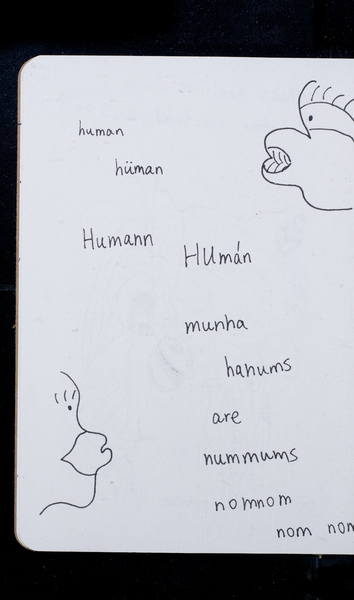 human
hüman
Humann
HUmán
munha
hanums
are
nummums
nomnom
nom nom